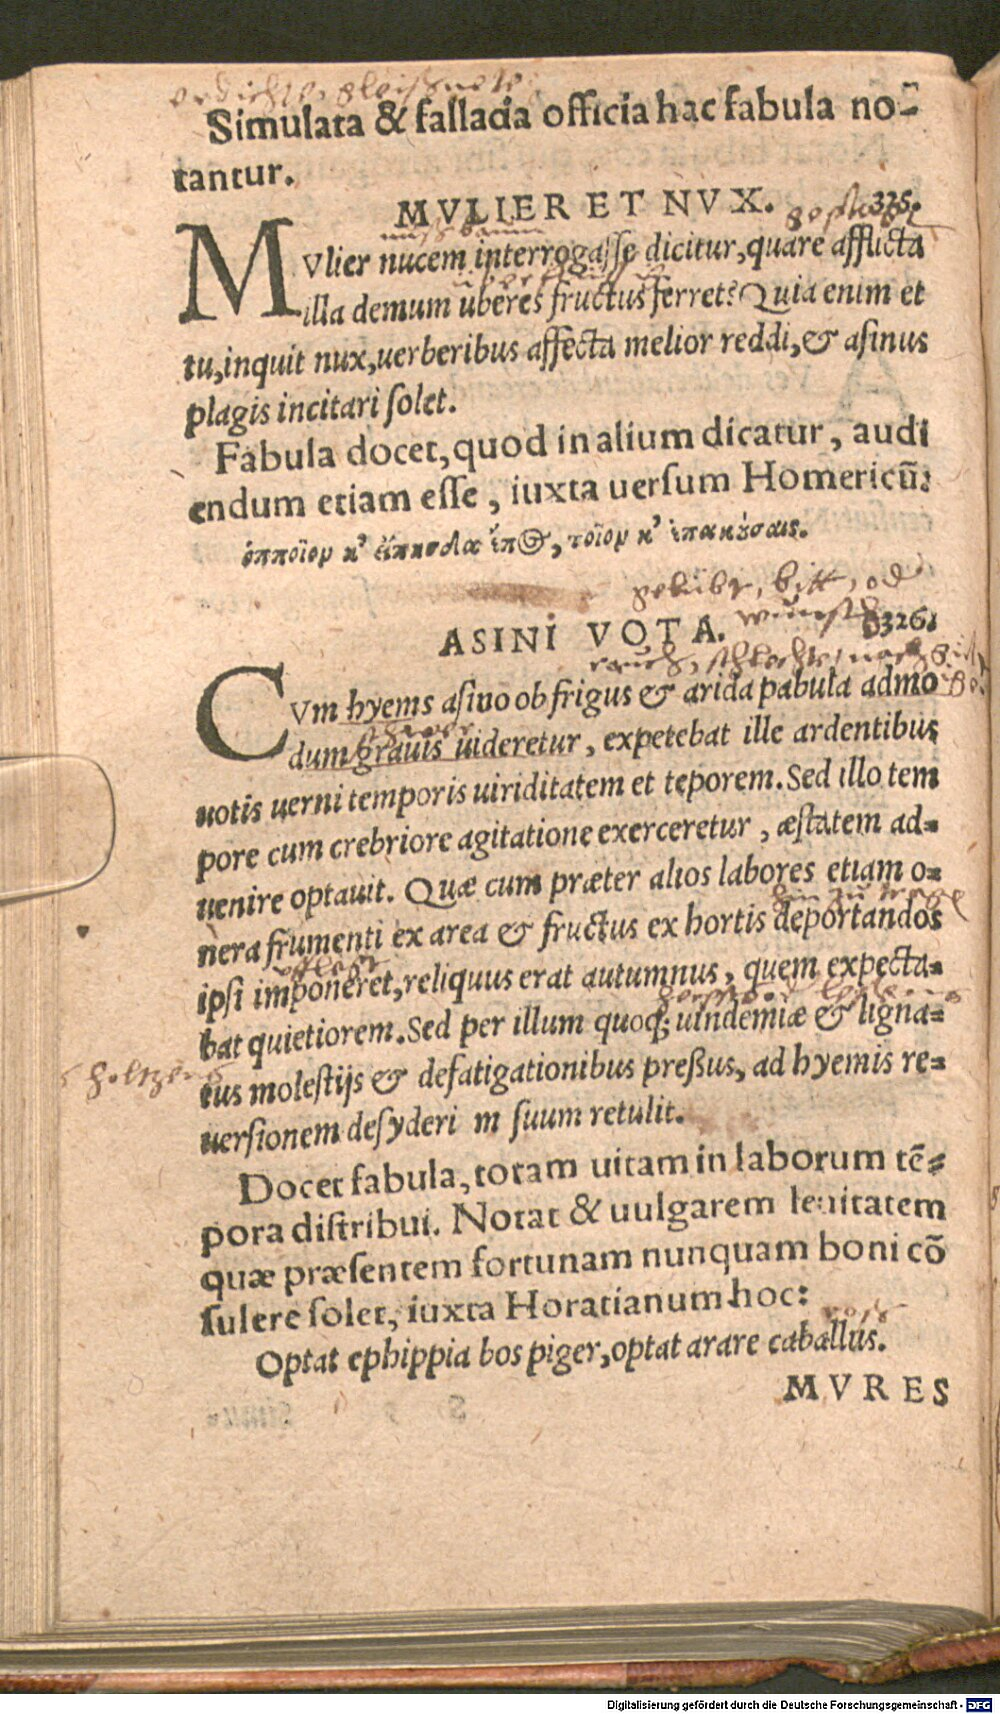 Simulata & fallacia officia hac fabula no¯-
tantur.
MVLIER ET NVX. 325.
nußbaum
MVlier nucem interrogasse dicitur, quare afflicta
illa demum uberes fructus ferret? Quia enim et
tu, inquit nux, uerberibus affecta melior reddi, & asinus
plagis incitari solet.
Fabula docet, quod in alium dicatur, audi
endum etiam esse, iuxta uersum Homericū:
ὁπποῖον κ' εἴπησθα ἔπος, τοῖον κ' ἐπακούσαις.
gelübt, bitt, od
wunsch
ASINI VOTA. 326.
CVm hyems asino ob frigus & arida pabula admo
schwer
dum grauis uideretur, expetebat ille ardentibus
uotis uerni temporis uiriditatem et teporem. Sed illo tem
pore cum crebriore agitatione exerceretur, æstatem ad-
uenire optauit. Quæ cum præter alios labores etiam o-
nera frumenti ex area & fructus ex hortis deportandos
ipsi imponeret, reliquus erat autumnus, quem expecta-
bat quietiorem. Sed per illum quoq; uindemiæ & ligna-
tus molestijs & defatigationibus preßus, ad hyemis re-
uersionem desyderi m suum retulit.
Docet fabula, totam uitam in laborum tē-
pora distribui. Notat & uulgarem leuitatem
quæ præsentem fortunam nunquam boni cō
sulere solet, iuxta Horatianum hoc:
roß
Optat ephippia bos piger, optat arare caballus.
MVRES
Digitalisierung gefördert durch die Deutsche Forschungsgemeinschaft - DFG